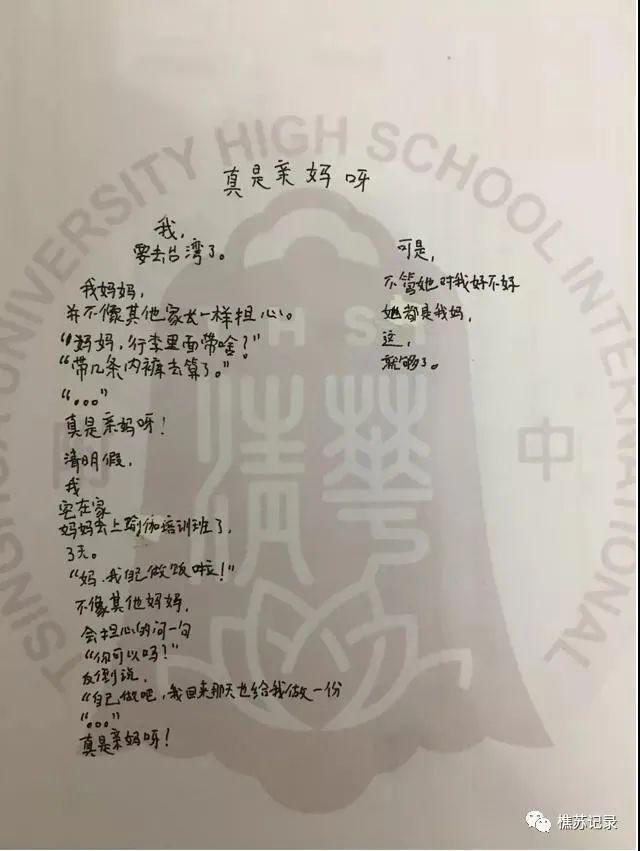 真是亲妈呀
我，
要去台湾了。
我妈妈，
并不像其他家长一样担心。
“妈妈，行李里面带啥？”
“带几条内裤去算了。”
“。。。”
真是亲妈呀！
清明假，
我
宅在家
妈妈去上瑜伽培训班了，
3天。
“妈，我自己做饭啦！”
不像其他妈妈，
会担心的问一句
“你可以吗？”
反倒说，
“自己做吧，我回来那天也给我做一份
“。。。”
真是亲妈呀！
可是，
不管她对我好不好
她都是我妈，
这，
就够了。
TSINGHUA UNIVERSITY HIGH SCHOOL INTERNATIONAL
TH SI
清華
附
中
樵苏记录